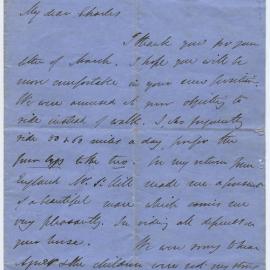 My dear Charles
I thank you for your
letter of March. I hope you will be
more comfortable in your new position.
We were amused at your objecting to
ride instead of walk. I so frequently
ride 50 & 60 miles a day prefer the
four legs to the two. On my return from
England Mr. made me a present
of a beautiful mare which carries me
very pleasantly. In riding all depends on
your horse. We were sorry to hear
Agnes & the children were not